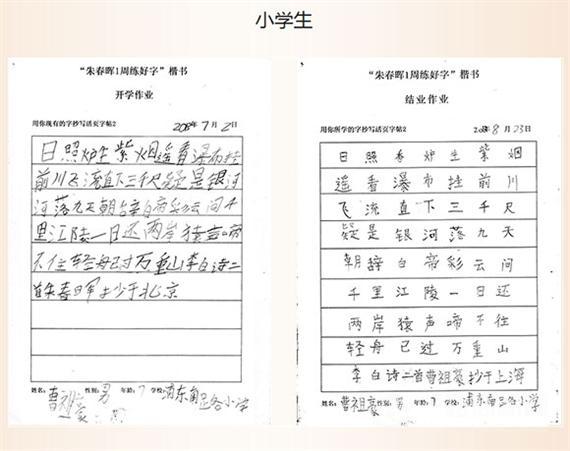 小学生
“朱春晖1周练好字”楷书
开学作业
用你现有的字抄写活页字帖2 7月2日
日照炉生紫烟遥看瀑布挂
前川飞流直下三千尺疑是银河
河落九天朝辞白帝彩云间千
里江陵一日还两岸猿声啼
不住轻舟已过万重山李白诗二
首朱春晖抄于北京
姓名：曹祖豪 性别：男 年龄：7 学校：浦东 小学
“朱春晖1周练好字”楷书
结业作业
用你所学的字抄写活页字帖2 8月23日
日照香炉生紫烟
遥看瀑布挂前川
飞流直下三千尺
疑是银河落九天
朝辞白帝彩云间
千里江陵一日还
两岸猿声啼不住
轻舟已过万重山
李白诗二首曹祖豪抄于上海
姓名：曹祖豪 性别：男 年龄：7 学校：浦东 小学